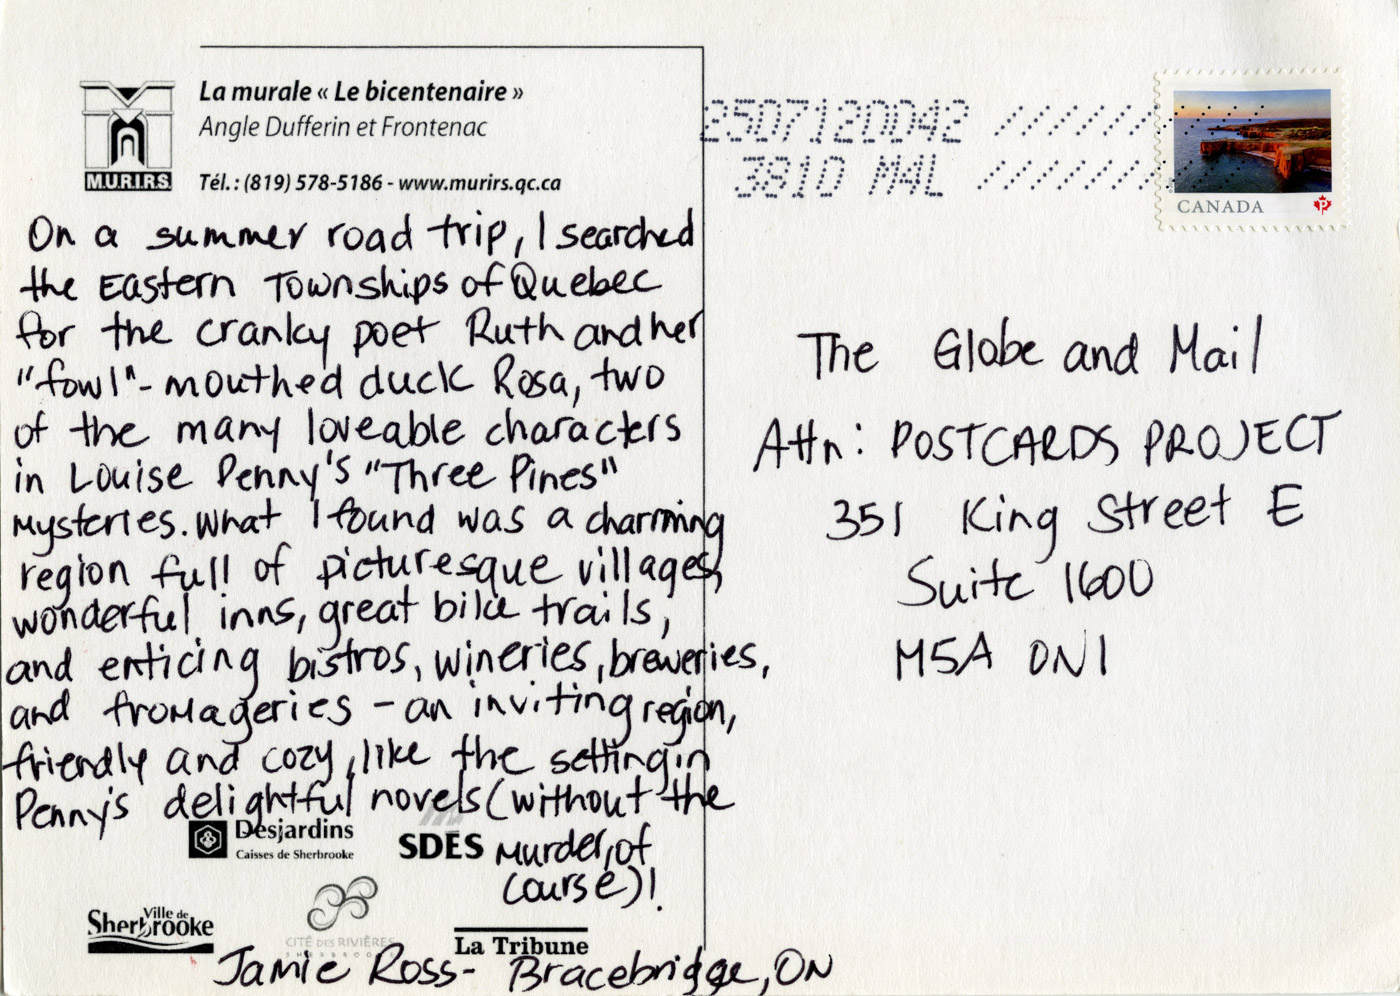 La murale « Le bicentenaire »
Angle Dufferin et Frontenac
M.U.R.I.R.S.
Tél. : (819) 578-5186 - www.murirs.qc.ca
On a summer road trip, I searched
the Eastern Townships of Quebec
for the cranky poet Ruth and her
"fowl"-mouthed duck Rosa, two
of the many loveable characters
in Louise Penny's "Three Pines"
mysteries. What I found was a charming
region full of picturesque villages,
wonderful inns, great bike trails,
and enticing bistros, wineries, breweries,
and fromageries - an inviting region,
friendly and cozy, like the setting in
Penny's delightful novels (without the
murder, of
course)!
Desjardins
Caisses de Sherbrooke
SDES
Ville de
Sherbrooke
CITÉ DES RIVIÈRES
SHERBROOKE
La Tribune
Jamie Ross - Bracebridge, ON
2507120042
3810 MAL
CANADA
P
The Globe and Mail
Attn: POSTCARDS PROJECT
351 King Street E
Suite 1600
M5A 0N1